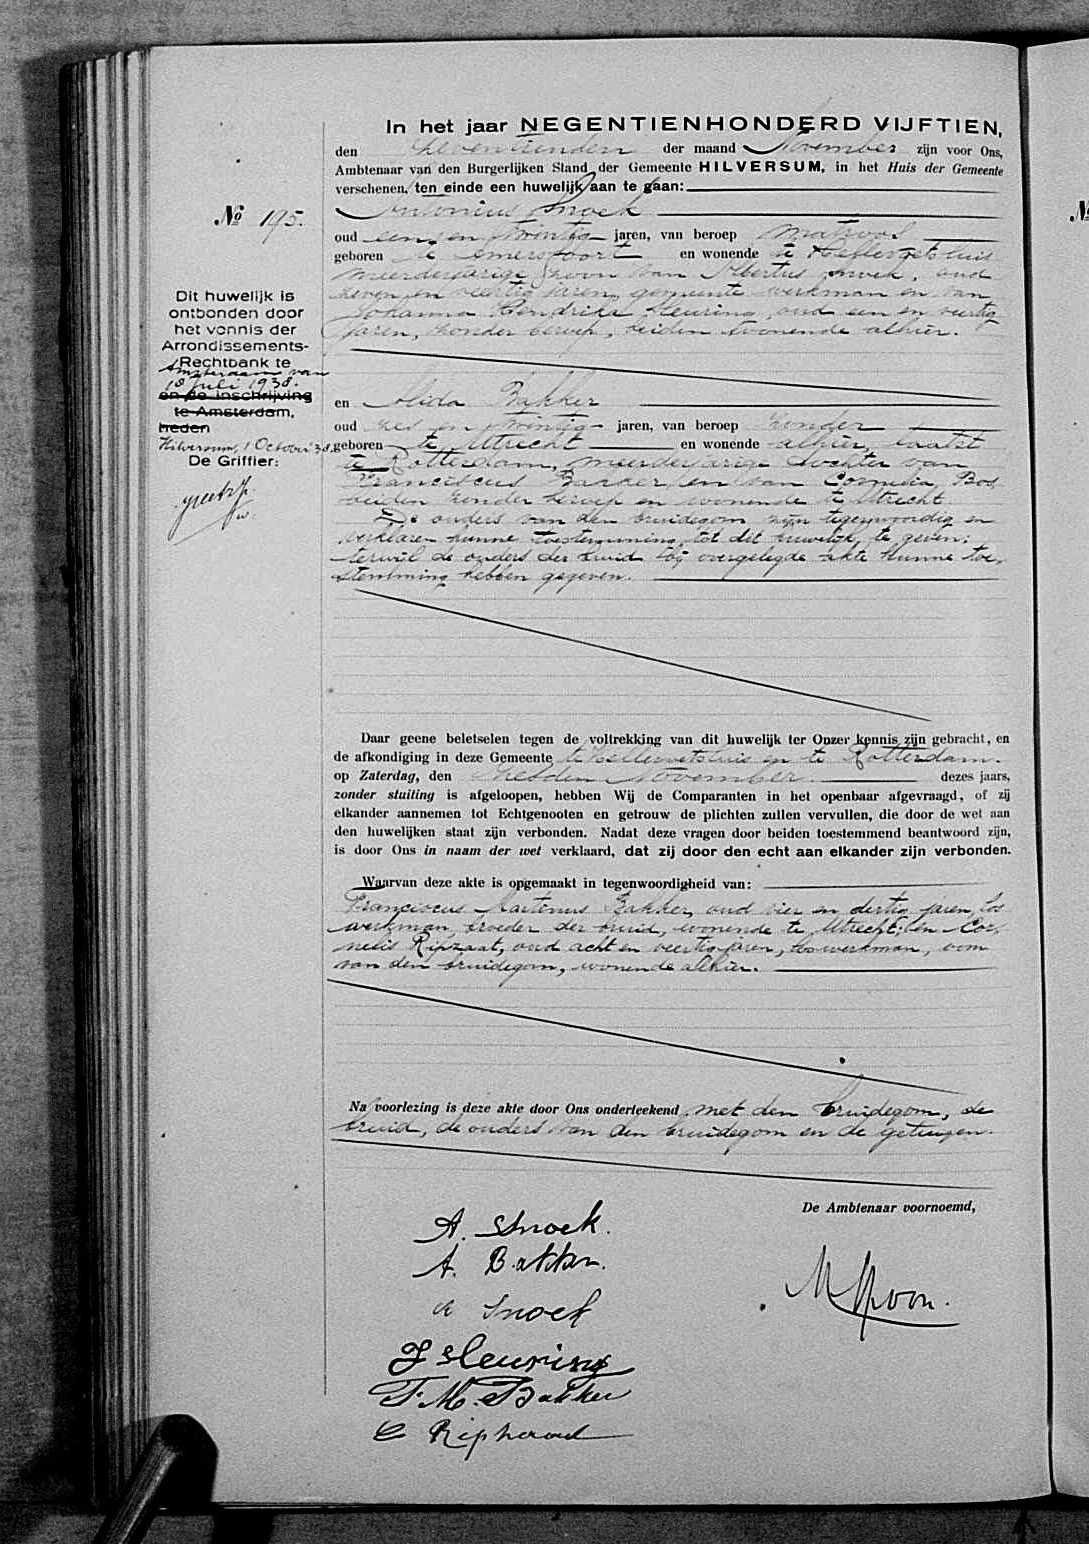 In het jaar NEGENTIENHONDERD VIJFTIEN,
den zeventienden der maand November zijn voor Ons,
Ambtenaar van den Burgerlijken Stand der Gemeente HILVERSUM, in het Huis der Gemeente
verschenen, ten einde een huwelijk aan te gaan:
Antonius Snoek
oud een en twintig jaren, van beroep matroos
geboren te Amersfoort en wonende te Hellevoetsluis
meerderjarige zoon van Albertus Snoek, oud
zeven en veertig jaren, gemeente werkman en van
Johanna Hendrika Sleuring, oud een en veertig
jaren, zonder beroep, beiden wonende alhier.
en Alida Bakker
oud zes en twintig jaren, van beroep zonder
geboren te Utrecht en wonende alhier, laatst
te Rotterdam, meerderjarige dochter van
Franciscus Bakker, en van Cornelia Bos
beiden zonder beroep en wonende te Utrecht
De ouders van den bruidegom zijn tegenwoordig en
verklaren hunne toestemming tot dit huwelijk te geven;
terwijl de ouders der bruid bij overgelegde akte hunne toe-
stemming hebben gegeven.
Daar geene beletselen tegen de voltrekking van dit huwelijk ter Onzer kennis zijn gebracht, en
de afkondiging in deze Gemeente te Hellevoetsluis en te Rotterdam.
op Zaterdag, den zesden November dezes jaars,
zonder stuiting is afgeloopen, hebben Wij de Comparanten in het openbaar afgevraagd, of zij
elkander aannemen tot Echtgenooten en getrouw de plichten zullen vervullen, die door de wet aan
den huwelijken staat zijn verbonden. Nadat deze vragen door beiden toestemmend beantwoord zijn,
is door Ons in naam der wet verklaard, dat zij door den echt aan elkander zijn verbonden.
Waarvan deze akte is opgemaakt in tegenwoordigheid van:
Franciscus Martinus Bakker, oud vier en dertig jaren, los
werkman, broeder der bruid, wonende te Utrecht; en Cor-
nelis Ripzaat, oud acht en veertig jaren, los werkman, oom
van den bruidegom, wonende alhier.
Na voorlezing is deze akte door Ons onderteekend met den bruidegom, de
bruid, de ouders van den bruidegom en de getuigen.
De Ambtenaar voornoemd,
A. Snoek.
A. Bakker.
A Snoek
J Sleuring
F. M. Bakker
C
No 195.
Dit huwelijk is
ontbonden door
het vonnis der
Arrondissements-
Rechtbank te
Amsterdam van
18 Juli 1938.
en de inschrijving
te Amsterdam,
heden
Hilversum, 1 October '38.
De Griffier: